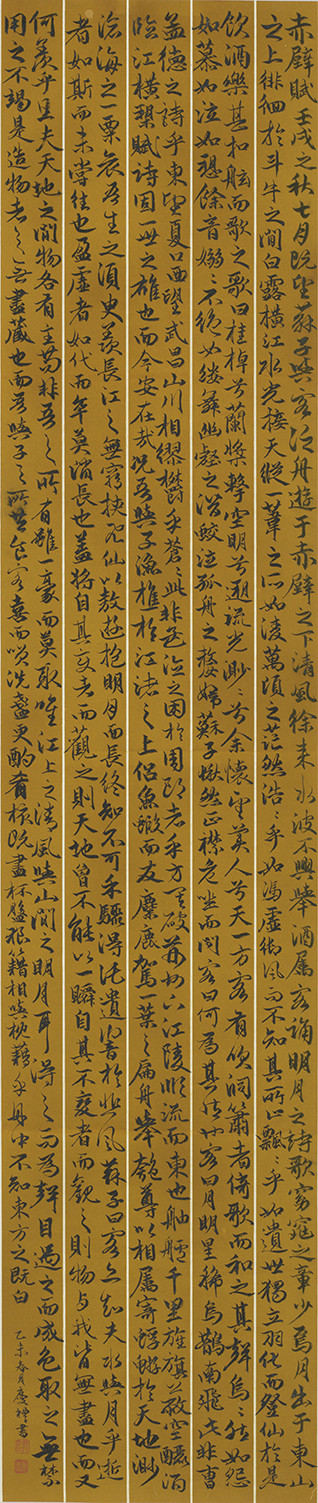 赤壁賦壬戌之秋七月既望蘇子與客泛舟遊于赤壁之下清風徐來水波不興舉酒属客誦明月之詩歌窈窕之章少焉月出于東山
之上徘徊於斗牛之間白露橫江水光接天縱一葦之所如凌萬頃之茫然浩々乎如馮虛御風而不知其所止飄々乎如遺世獨立羽化而登仙於是
飲酒樂甚扣舷而歌之歌曰桂棹兮蘭槳擊空明兮溯流光渺々兮余懷望美人兮天一方客有吹洞簫者倚歌而和之其聲烏々然如怨
如慕如泣如愬餘音嫋々不絕如縷舞幽壑之潛蛟泣孤舟之嫠婦蘇子愀然正襟危坐而問客曰何為其然也客曰月明星稀烏鵲南飛此非曹
孟德之詩乎東望夏口西望武昌山川相繆欝乎蒼々此非孟德之困於周郎者乎方其破荊州下江陵順流而東也舳艫千里旌旗蔽空釃酒
臨江橫槊賦詩固一世之雄也而今安在哉況吾與子漁樵於江渚之上侶魚蝦而友麋鹿駕一葉之扁舟舉匏尊以相属寄蜉蝣於天地渺
滄海之一粟哀吾生之須臾羨長江之無窮挾飛仙以遨遊抱明月而長終知不可乎驟得託遺響於悲風蘇子曰客亦知夫水與月乎逝
者如斯而未嘗往也盈虛者如代而卒莫消長也蓋將自其変者而觀之則天地曾不能以一瞬自其不變者而觀之則物与我皆無盡也而又
何羨乎且夫天地之間物各有主苟非吾之所有雖一毫而莫取唯江上之清風與山間之明月耳得之而為聲目遇之而成色取之無禁
用之不竭是造物者之無盡藏也而吾與子之所共食客喜而笑洗盞更酌肴核既盡杯盤狼籍相與枕藉乎舟中不知東方之既白
乙未春月慶禮書